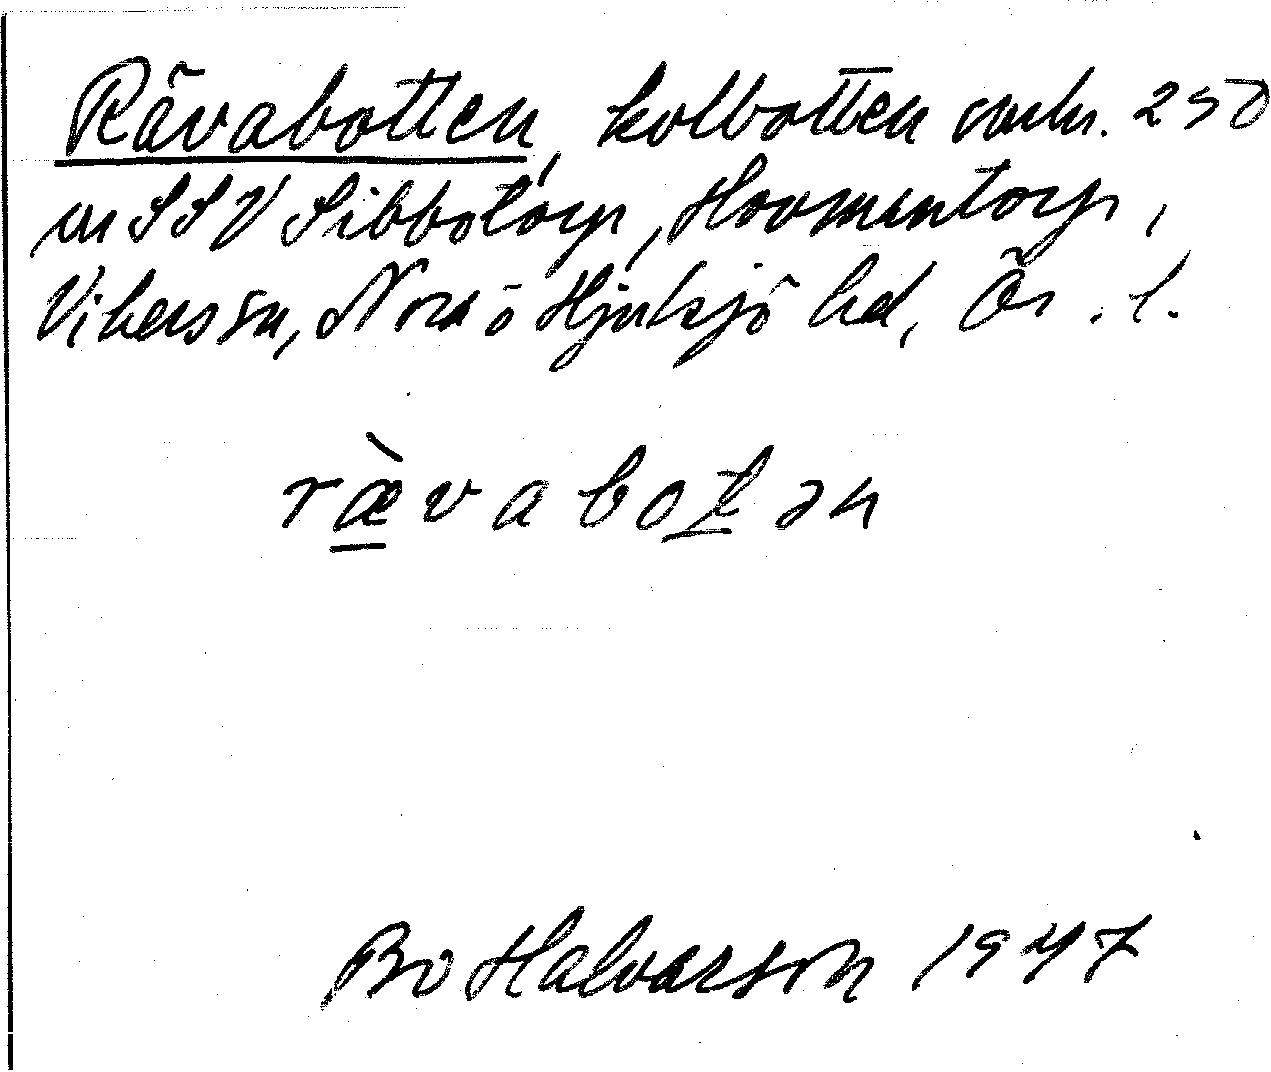 Rävabotten, kolbotten omkr. 250
m SSV Sibbotorp, Hovmantorp,
Vikers sn, Nora o Hjulsjö bd, Ör. l.
rævabotən
Bo Halvarson 1947